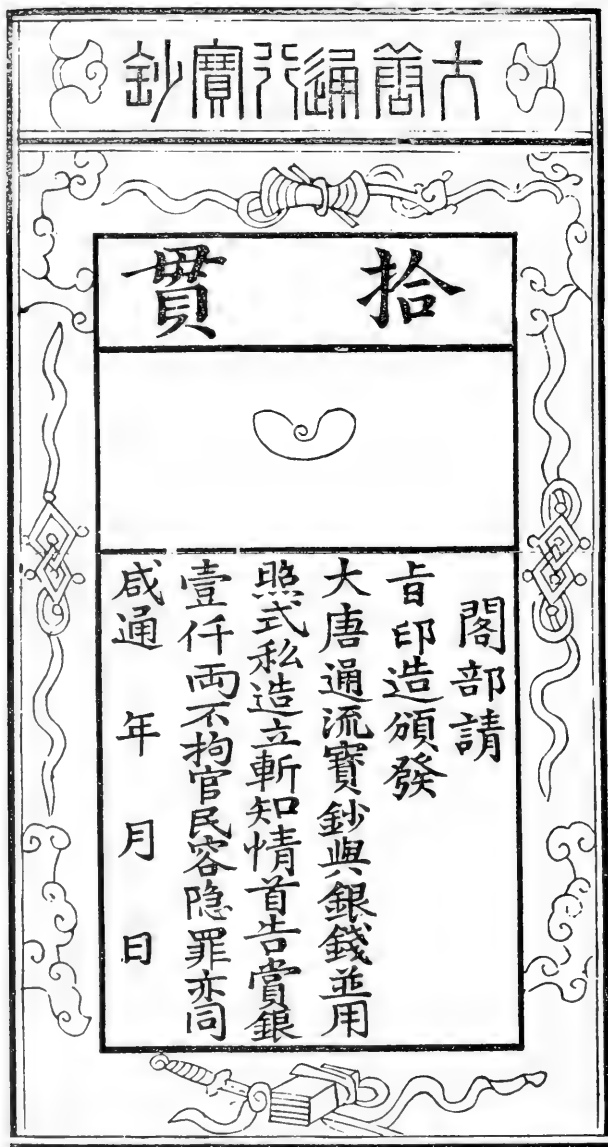 大唐通行寶鈔
拾貫
閣部請
旨印造頒發
大唐通流寶鈔與銀錢並用
照式私造立斬知情首告賞銀
壹仟両不拘官民容隐罪亦同
咸通 年 月 日